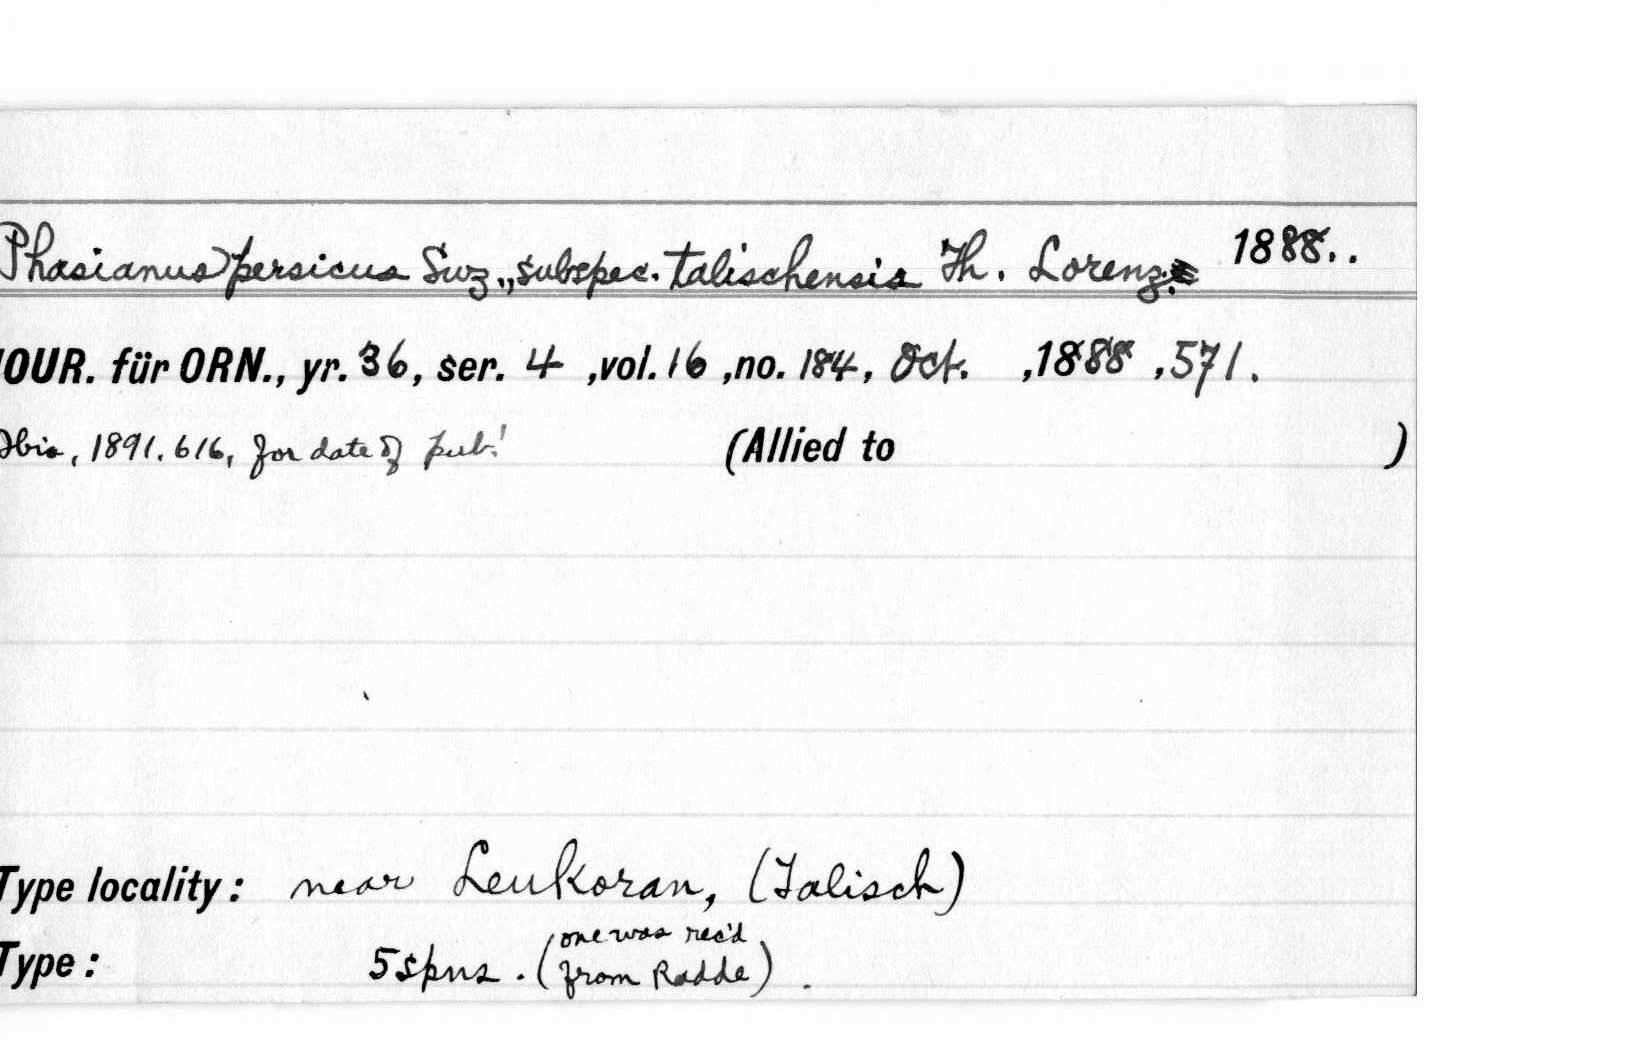 Phasianus persicus Swz., subspec. talischensis Th. Lorenz. 1888..
JOUR. für ORN., yr. 36, ser. 4 ,vol. 16 ,no. 184, Oct. ,1888 ,571.
Ibis, 1891. 616, for date of pub! (Allied to )
Type locality: near Leukoran, (Talisch)
Type: 5 spns. (one was rec'd from Radde).